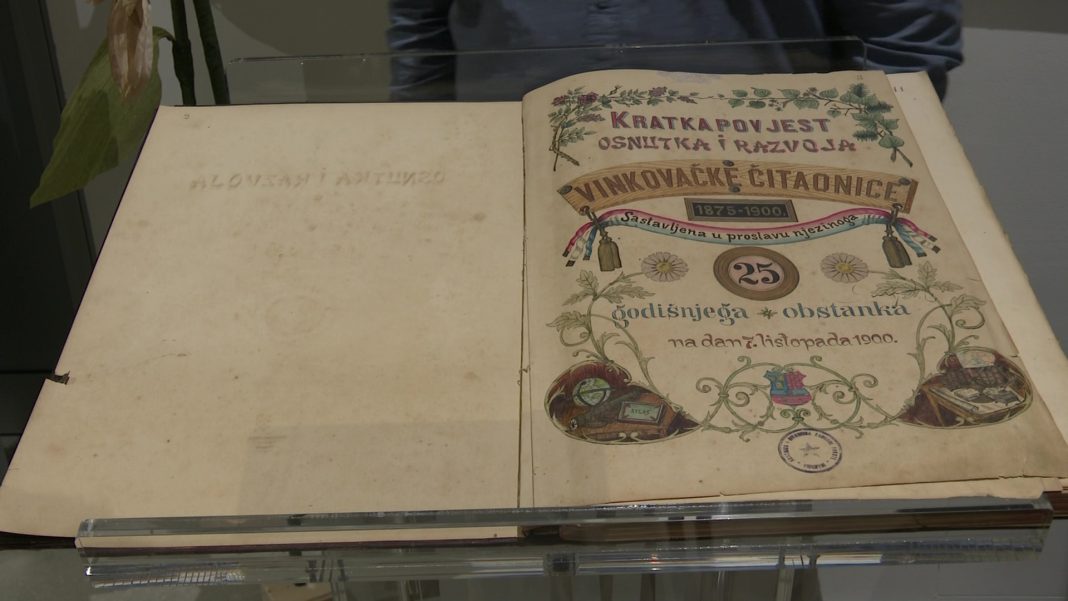 KRATKA POVJEST
OSNUTKA i RAZVOJA
VINKOVAČKE ČITAONICE
1875-1900.
Sastavljena u proslavu njezinoga
25
godišnjega * obstanka
na dan 7. listopada 1900.
ATLAS